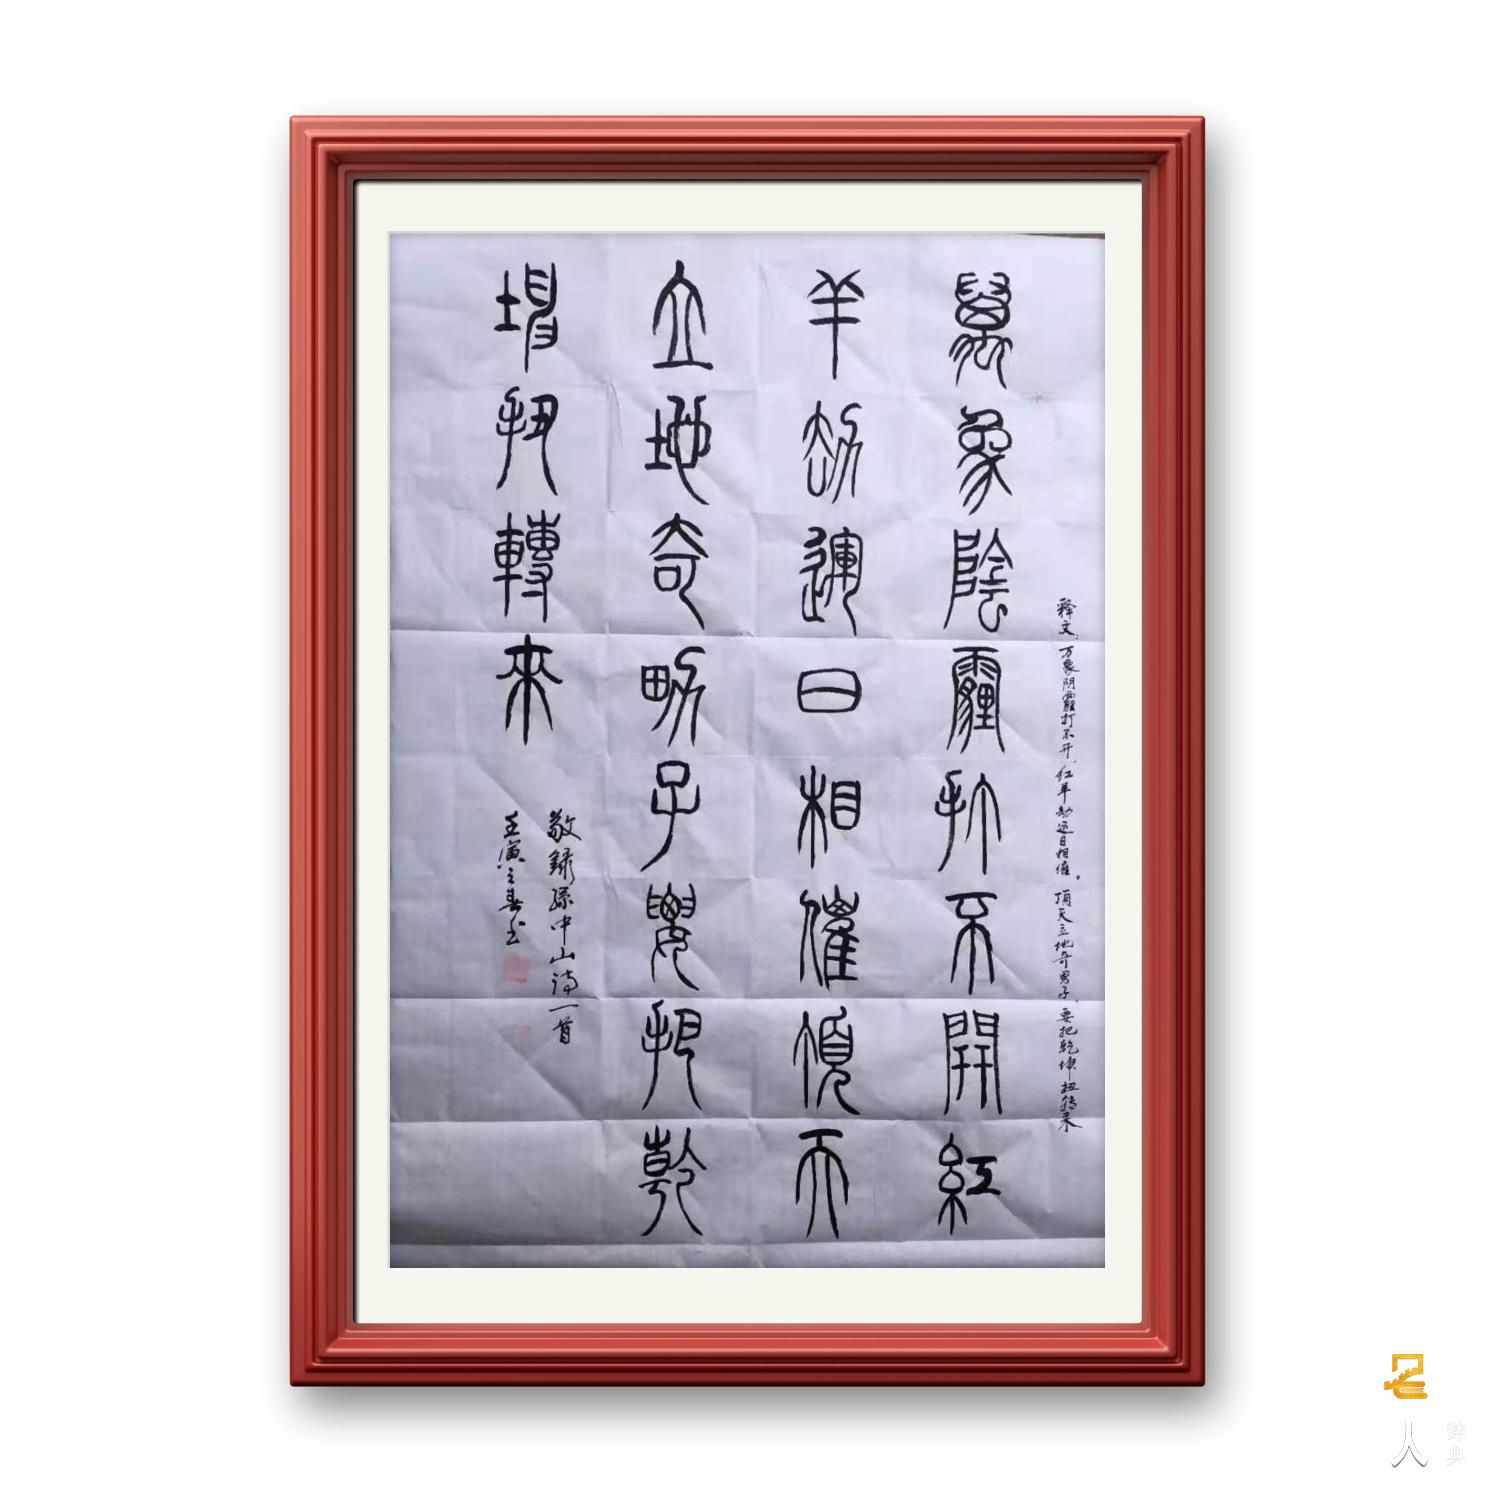 释文 万象阴霾打不开 红羊劫运日相催。顶天立地奇男子 要把乾坤扭转来
萬象陰霾打不開紅
羊劫運日相催頂天
立地奇男子要把乾
坤扭轉來
敬録孫中山诗一首
壬寅之春书
名人
辞典